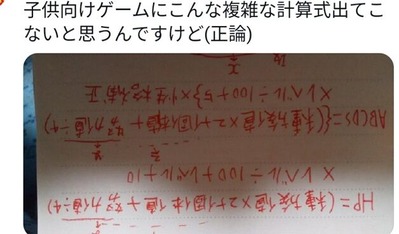 子供向けゲームにこんな複雑な計算式出てこ
ないと思うんですけど(正論)
HP=(種族値×2+個体値+努力値÷4)
×レベル÷100+レベル+10
ABCDS={(種族値×2+個体値+努力値÷4)
×レベル÷100+5}×性格補正